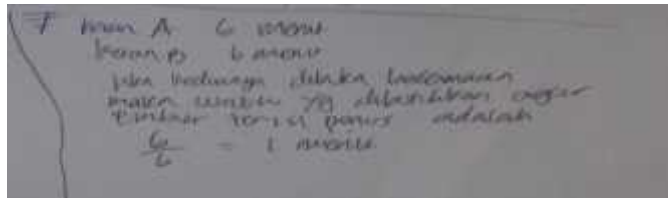 7 kran A 6 menit
keran B 6 menit
jika keduanya dibuka bersamaan
maka waktu yg dibutuhkan agar
ember terisi penuh adalah
6/6 = 1 menit